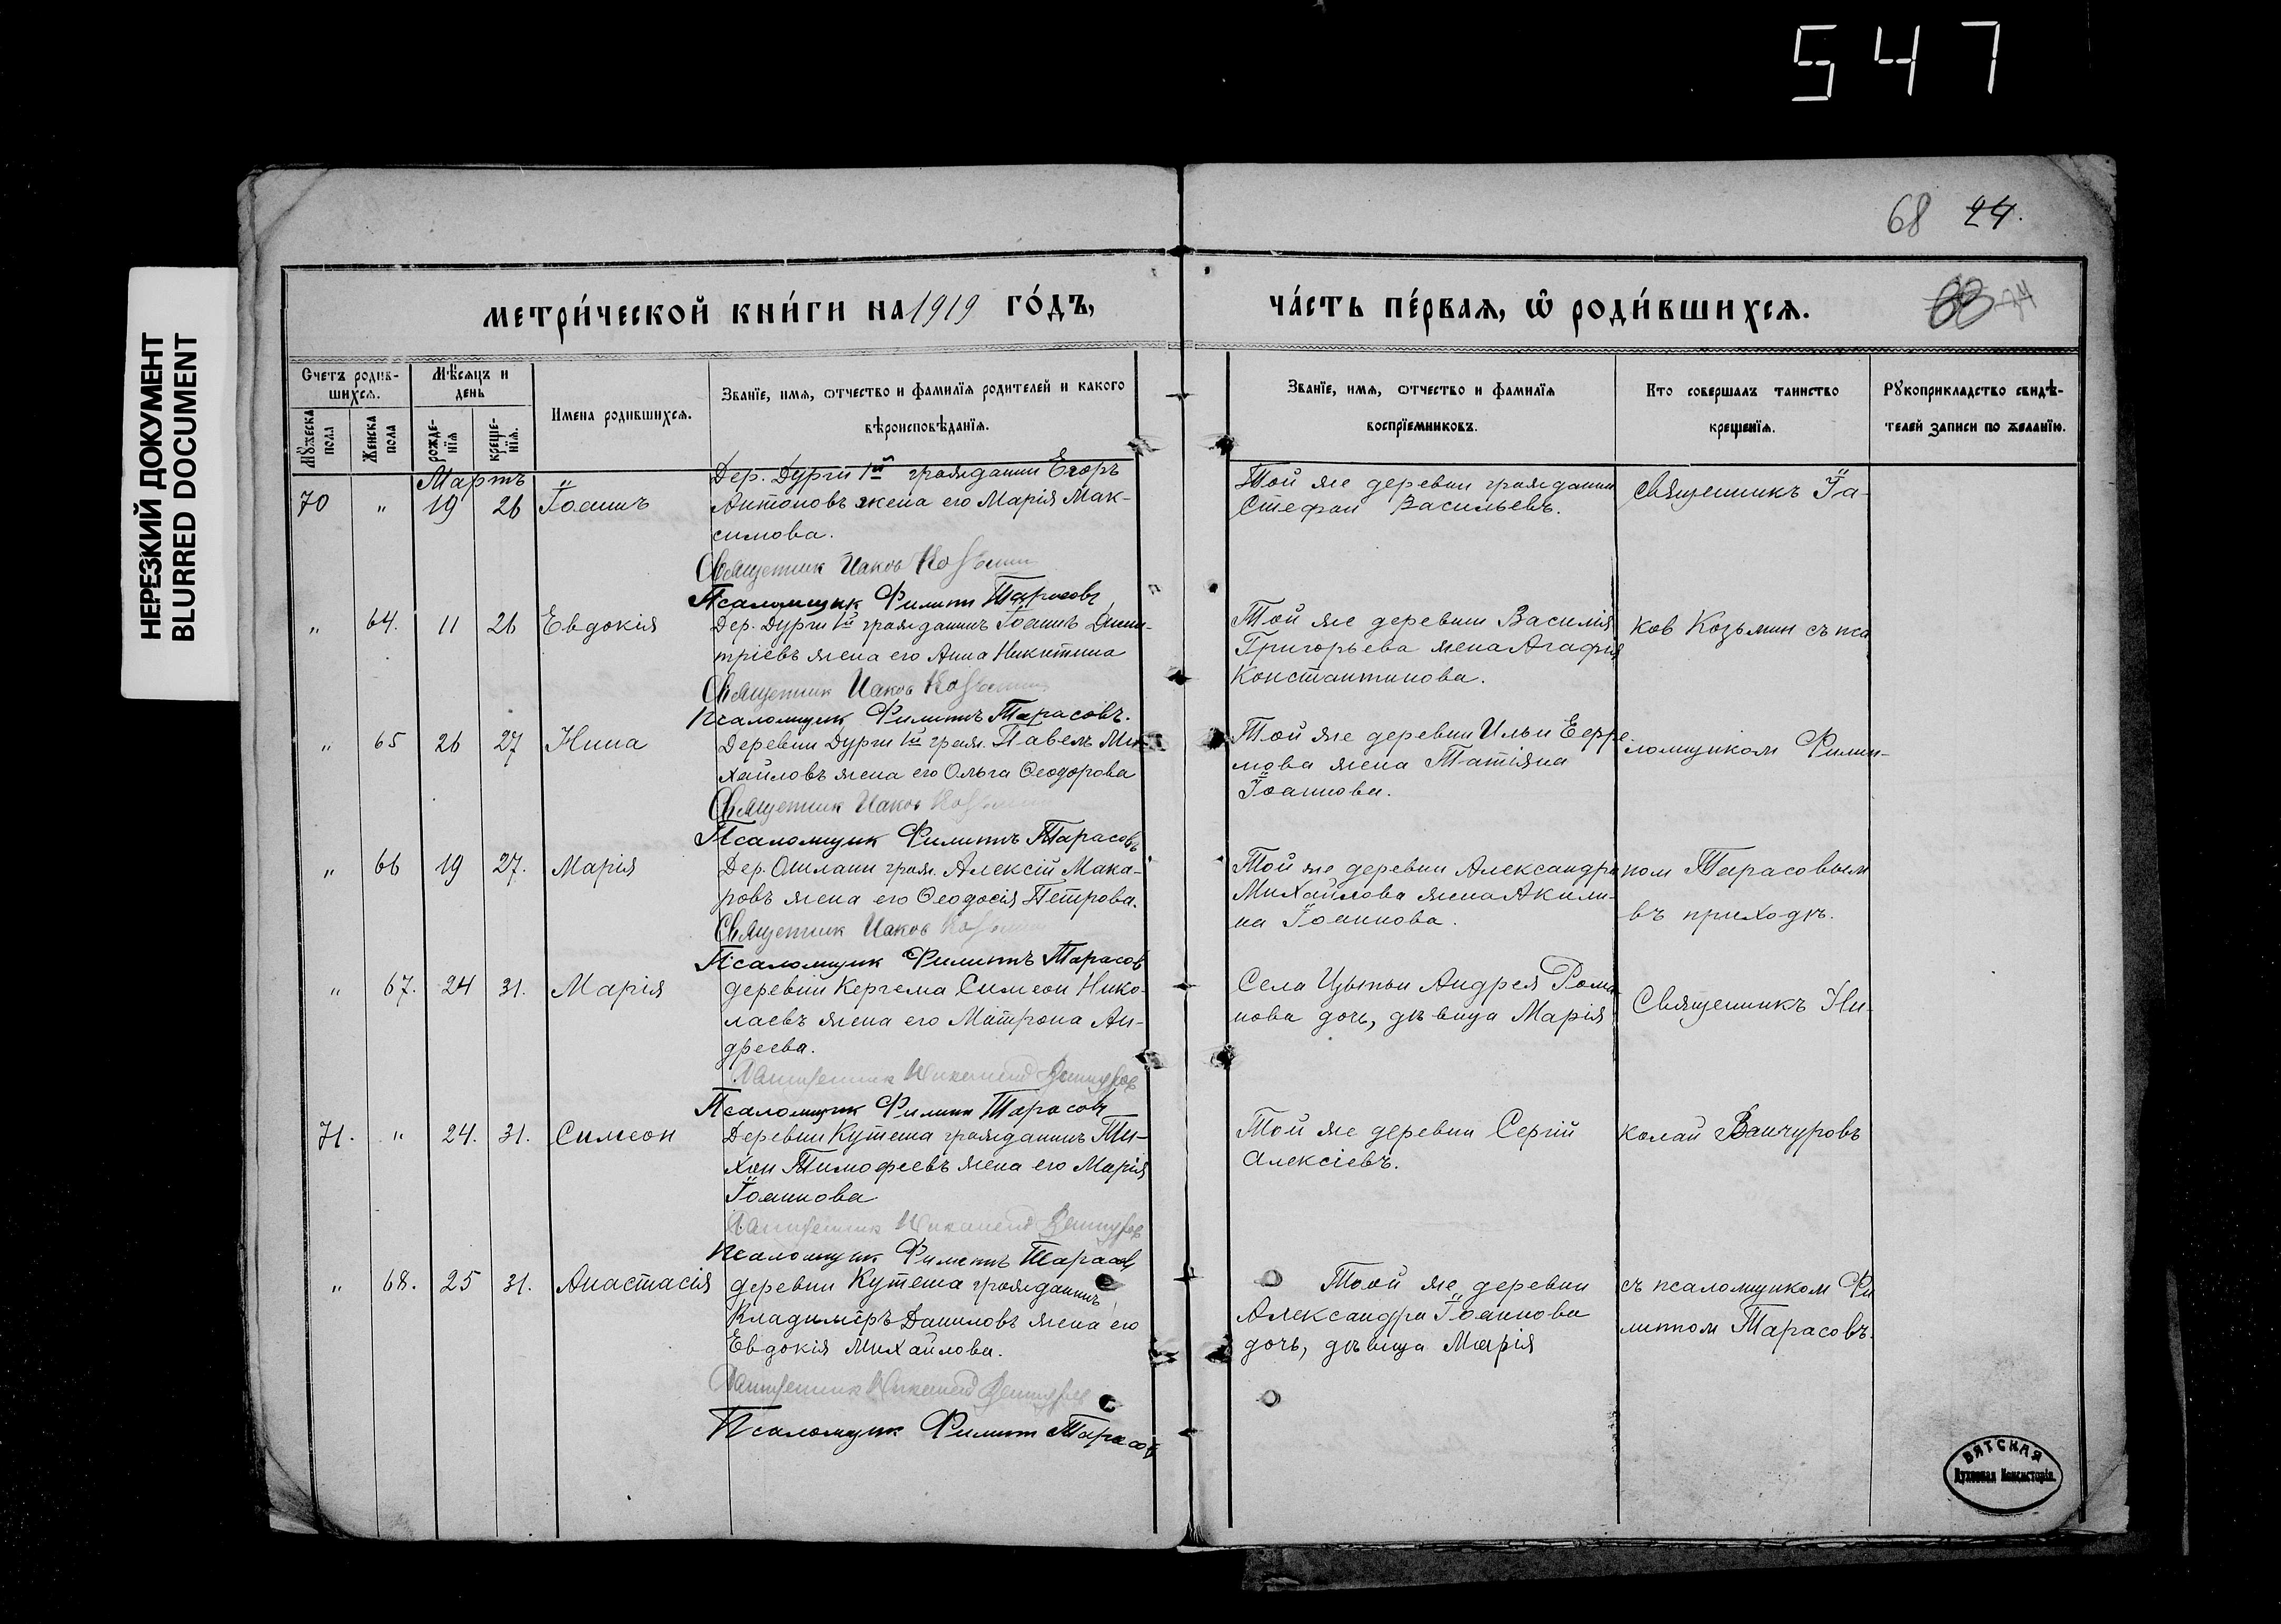 547
НЕРЕЗКИЙ ДОКУМЕНТ
BLURRED DOCUMENT
68 24.
метри́ческой кни́ги на 1919 го́дъ,
ча́сть пе́рвая, ѡ҆ роди́вшихсѧ.
Счетъ родив-
шихсѧ.
Мѣсѧцъ и
день
Мужеска
пола
Женска
пола
рожде-
нїѧ
креще-
нїѧ.
Имена родившихсѧ.
Званїе, имѧ, ѿчество и фамилїѧ родителей и какого
вѣроисповѣданїѧ.
Званїе, имѧ, ѿчество и фамилїѧ
воспрїемниковъ.
Кто совершалъ таинство
крещенїѧ.
Рукоприкладство свидѣ-
телей записи по желанїю.
Мартъ
70 " 19 26 Іоаннъ
Дер. Дурги 1й гражданин Егоръ
Антоновъ жена его Марія Мак-
симова.
Священник Иаков Козьмин
Псаломщик Филипп Тарасовъ
Той же деревни гражданин
Стефан Васильевъ.
Священникъ Іа-
" 64. 11 26 Евдокія
Дер. Дурги 1й гражданинъ Іоаннъ Дими-
тріевъ жена его Анна Никитина
Священник Иаков Козьмин
Псаломщик Филиппъ Тарасовъ.
Той же деревни Василія
Григорьева жена Агафія
Константинова.
ков Козьмин съ пса
" 65 26 27 Нина
Деревни Дурги 1й граж. Павелъ Ми-
хайловъ жена его Ольга Ѳеодорова
Священник Иаков Козьмин
Псаломщик Филиппъ Тарасовъ
Той же деревни Ильи Ефре-
мова жена Татіяна
Іоаннова.
ломщиком Филип-
" 66 19 27. Марія
Дер. Ошлани граж. Алексій Мака-
ровъ жена его Ѳеодосія Петрова.
Священник Иаков Козьмин
Псаломщик Филиппъ Тарасов
Той же деревни Александра
Михайлова жена Акили-
на Іоаннова.
пом Тарасовым
въ приходѣ.
" 67. 24 31. Марія
деревни Кергема Симеон Нико-
лаевъ жена его Матрона Ан-
дреева.
Священник Николай Ванчуров
Псаломщик Филипп Тарасовъ
Села Цыпьи Андрея Рома
нова дочь, дѣвица Марія
Священникъ Ни-
71. " 24. 31. Симеон
Деревни Кутеша гражданинъ Ти-
хон Тимофеевъ жена его Марія
Іоаннова
Священник Николай Ванчуров
Псаломщик Филиппъ Тарасов
Той же деревни Сергій
Алексіевъ.
колай Ванчуровъ
" 68. 25 31. Анастасія
деревни Кутеша гражданинъ
Владиміръ Даниловъ жена его
Евдокія Михайлова.
Священник Николай Ванчуров
Псаломщик Филипп Тарасов
Тоой же деревни
Александра Іоаннова
дочь, дѣвица Марія
съ псаломщиком Фи
липпом Тарасовъ.
ВЯТСКАЯ
Духовная Консисторія.